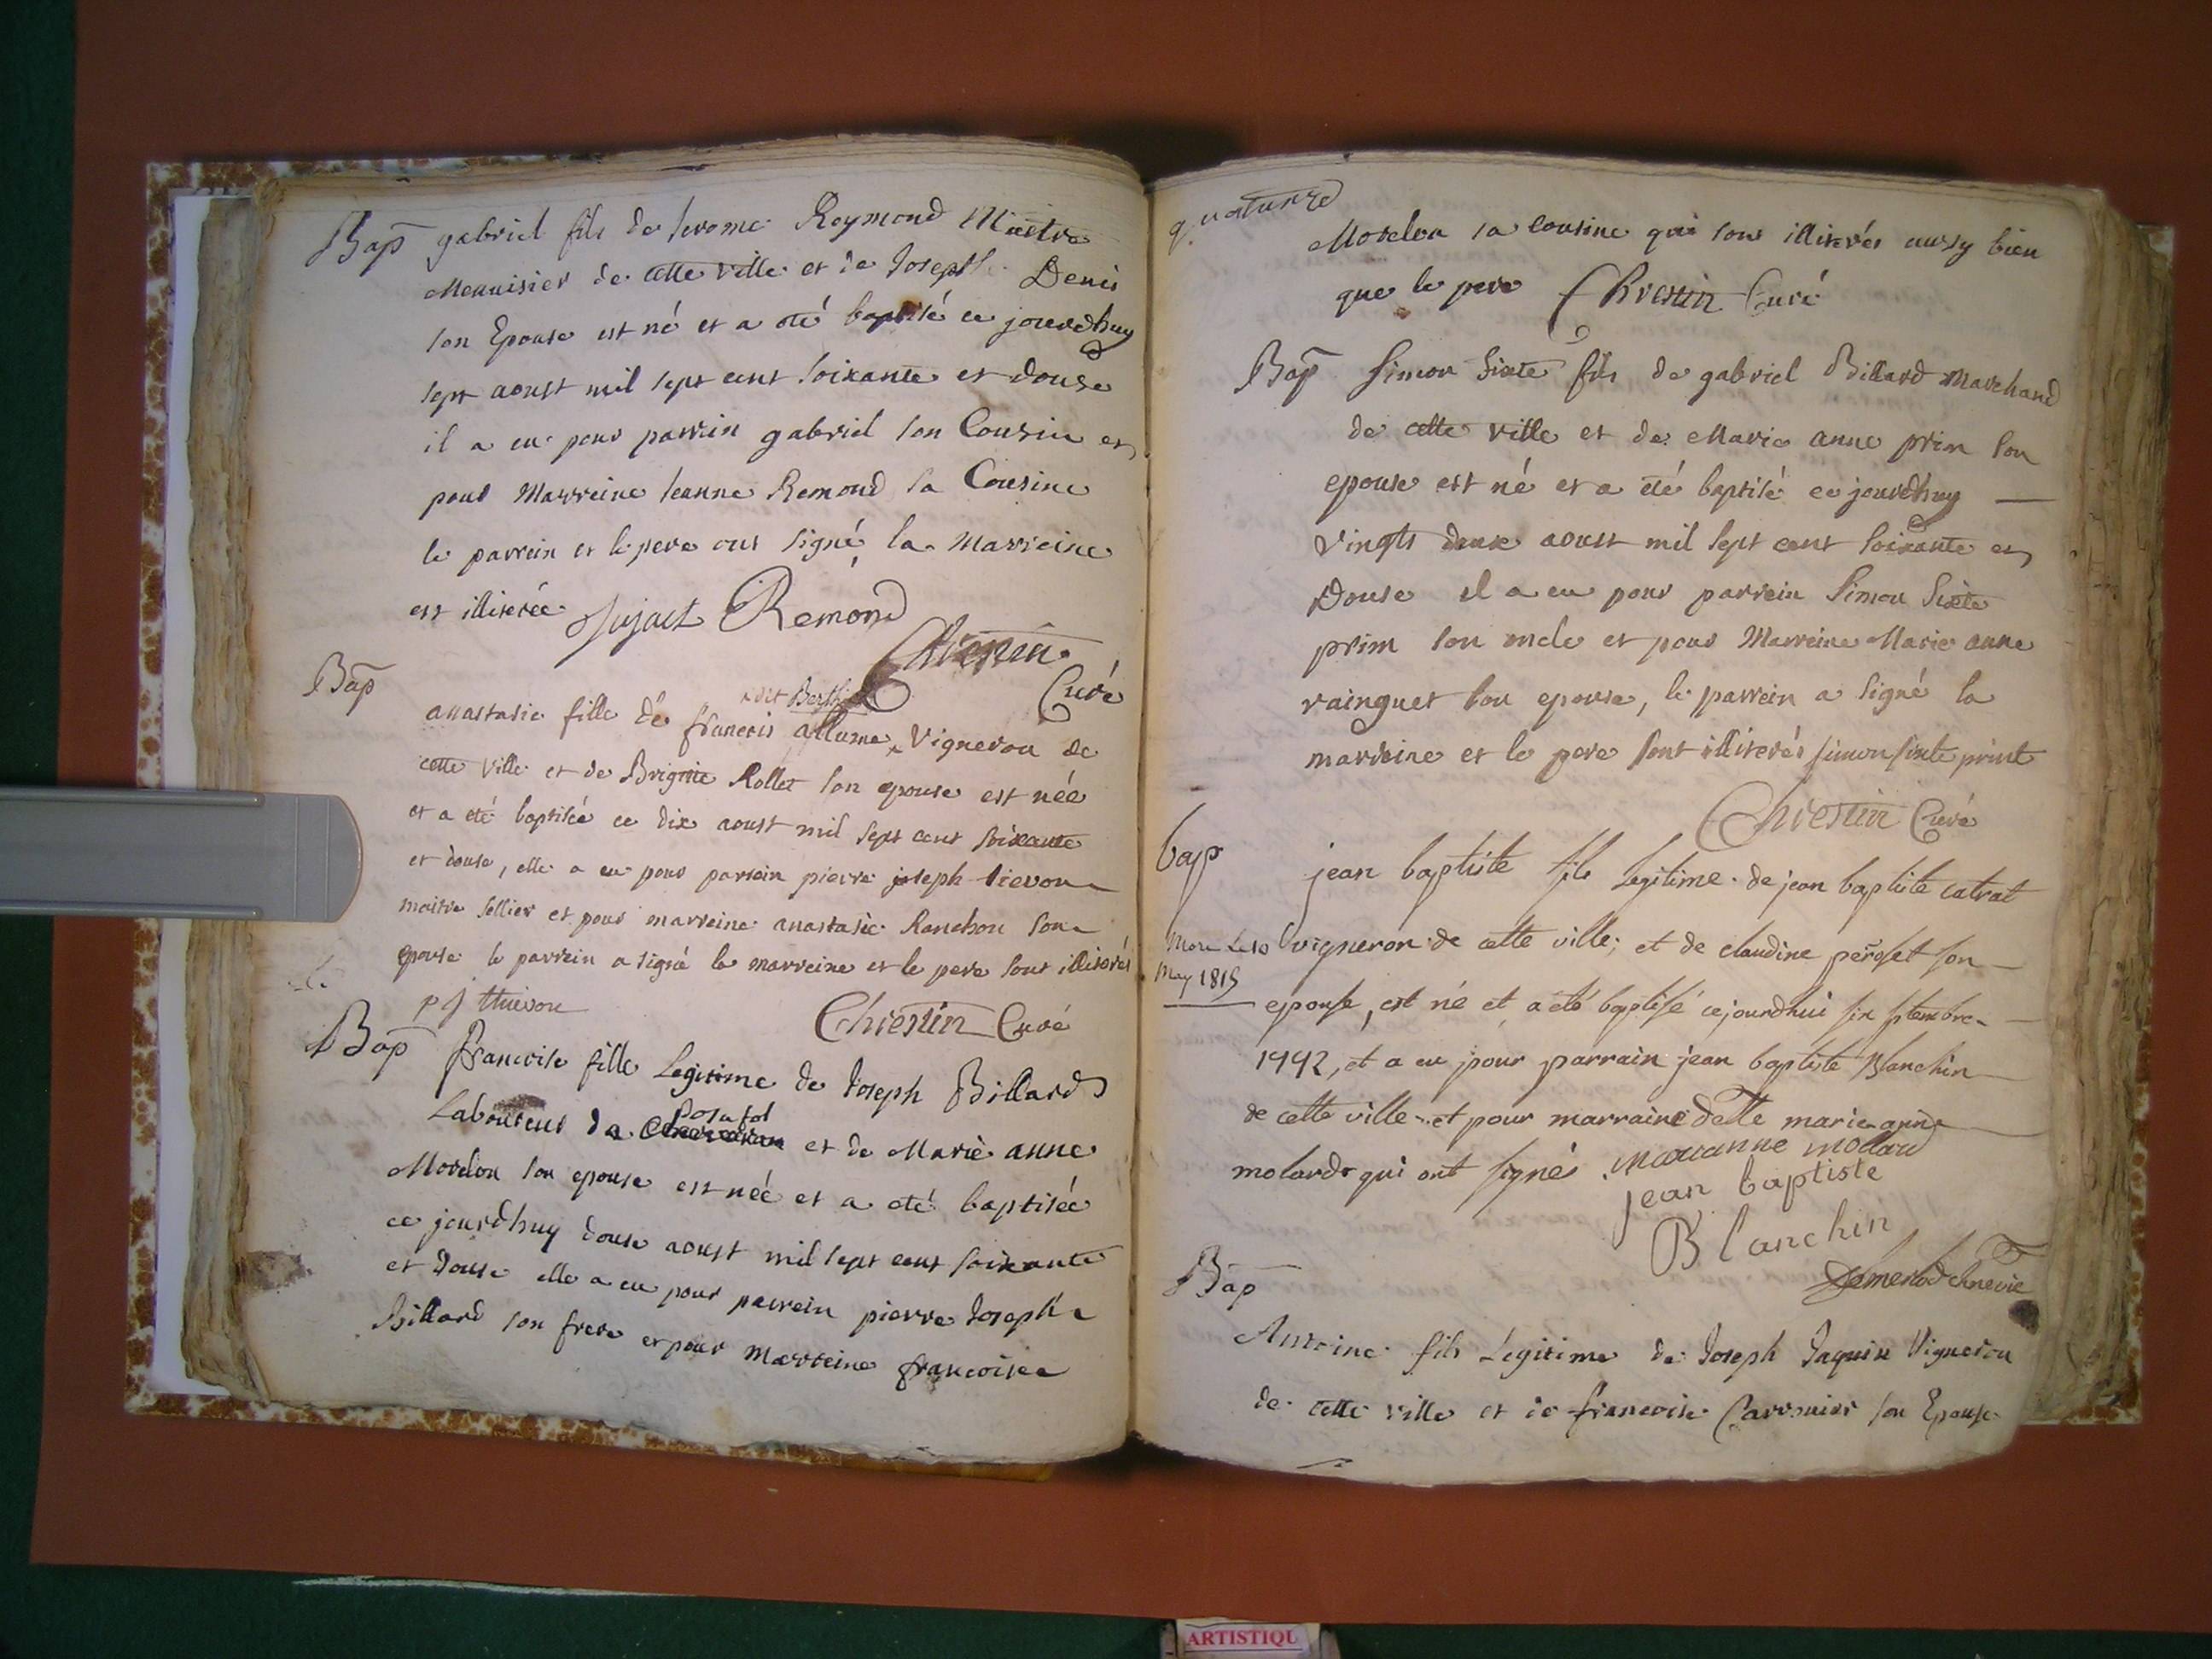 Bap gabriel fils de Jerome Reymond Maitre
Menuisier de cette ville et de Joseph Denis
son Epouse est né et a eté baptisé ce jourdhuy
sept aoust mil sept cent soixante et douse
il a eu pour parrin gabriel son Cousin et
pour Marreine Jeanne Remond sa Cousine
le parrein et le pere ont signé la Marreine
est illiterée Remond
Chrestin
Curé
Bap
dit
anastasie fille de francois allume Vigneron de
cette ville et de Brigitte Rollet son epouse est née
et a eté baptisée ce dix aoust mil sept cent soixante
et douse, elle a eu pour parrein pierre joseph tievon
maitre sellier et pour marreine anastasie Ranchon son
epouse le parrein a signé la marreine et le pere sont illiterés
p j thievon
Chrestin Curé
Bap francoise fille Legitime de Joseph Billard
Laboureur de et de Marie anne
Morelon son epouse est née et a eté baptisée
ce jourdhuy douse aoust mil sept cent soixante
et douse elle a eu pour parrein pierre Joseph
Billard son frere et pour marreine francoise
quatunze
Morelon sa cousine qui sont illiterés aussy bien
que le pere Chrestin Curé
Bap Simon Sixte fils de gabriel Billard Marchand
de cette ville et de Marie anne prim son
epouse est né et a eté baptisé ce jourdhuy
vingts deux aoust mil sept cent soixante et
Douse il a eu pour parrein Simon Sixte
prim son oncle et pour Marreine Marie anne
rainguet son epouse, le parrein a signé la
marreine et le pere sont illiterés simon sixte print
Chrestin Curé
bap
jean baptiste fils Legitime de jean baptiste catrat
mort le 10
May 1815
vigneron de cette ville; et de claudine son
epouse, est né et a eté baptisé cejourdhui six septembre
1772, et a eu pour parrain jean baptiste Blanchin
de cette ville et pour marraine delle marie anne
molard qui ont signés marianne mollard
jean baptiste
Blanchin
Bap
Antoine fils Légitime de Joseph Jaquin Vigneron
de cette ville et de francoise Carronier son Epouse
ARTISTIQU